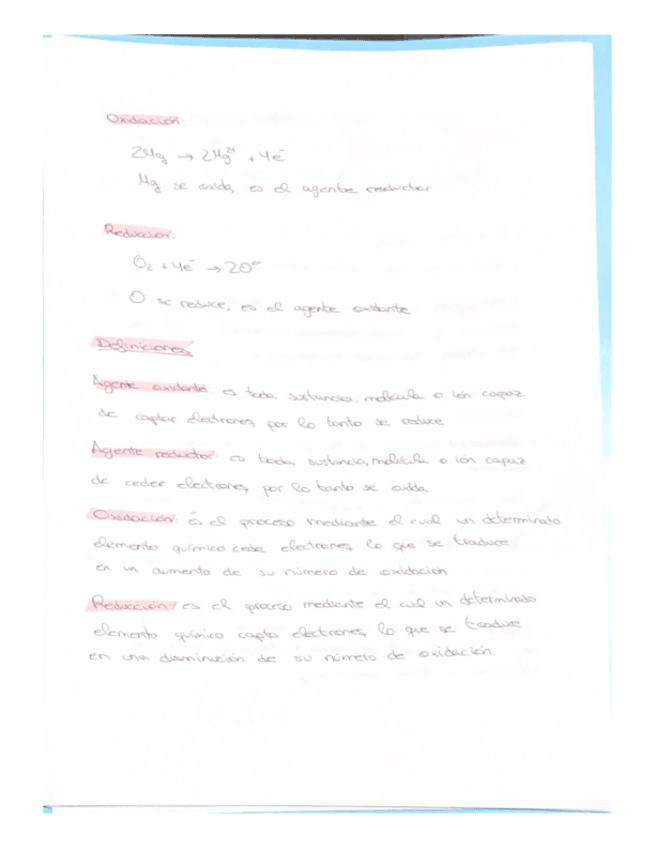 Oxidación:
2Mg → 2Mg²⁺ + 4e⁻
Mg se oxida, es el agente reductor
Reducción:
O₂ + 4e⁻ → 2O²⁻
O se reduce, es el agente oxidante
Definiciones
Agente oxidante: es toda sustancia, molécula o ión capaz
de captar electrones, por lo tanto se reduce
Agente reductor: es toda sustancia, molécula o ión capaz
de ceder electrones, por lo tanto se oxida
Oxidación: és el proceso mediante el cual un determinato
elemento químico cede electrones, lo que se traduce
en un aumento de su número de oxidación
Reducción: es el proceso mediante el cual un determinado
elemento químico capta electrones, lo que se traduce
en una disminución de su número de oxidación.